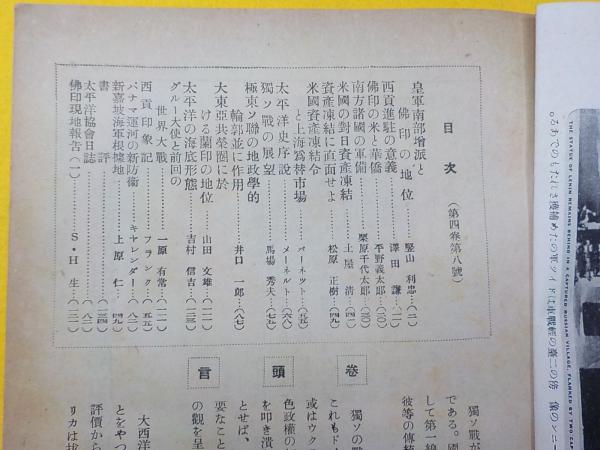 目次
(第四卷第八號)
皇軍南部增派と
佛印の地位 …… 堅山利忠…(二)
西貢進駐の意義 …… 澤田謙…(一一)
佛印の米と華僑 …… 平野義太郎…(二〇)
南方諸國の軍備 …… 栗原千代太郎…(三〇)
米國の對日資產凍結 …… 土屋淸…(四一)
資產凍結に直面せよ …… 松原正樹…(四九)
米國資產凍結令
と上海爲替市場 …… バーネット…(五九)
太平洋史序說 …… メーネルト…(六八)
獨ソ戰の展望 …… 馬場秀夫…(七五)
極東ソ聯の地政學的
輪郭並に作用 …… 井口一郎…(八七)
大東亞共榮圈に於
ける蘭印の地位 …… 山田文雄…(一一一)
太平洋の海底形態 …… 吉村信吉…(一二三)
グルー大使と前回の
世界大戰 …… 一原有常…(一一)
西貢印象記 …… フランク…(五五)
パナマ運河の新防衞 …… キヤレンダー…(八二)
新嘉坡海軍根據地 …… 上原仁…(四九)
書評 ……(一三四)
太平洋協會日誌 ……(八二)
佛印現地報告(一) …… S・H生…(三一)
卷頭言
獨ソ戰が
である。國
して第一線
彼等の傳統
獨ソの戰
これもド
或はウク
色政權の
を叩き潰
とせば、
要なこと
の觀を呈
大西洋
とをやつ
評價から
リカは
THE STATUE OF LENIN REMAINS BEHIND IN A CAPTURED RUSSIAN VILLAGE, FLANKED BY TWO CAP